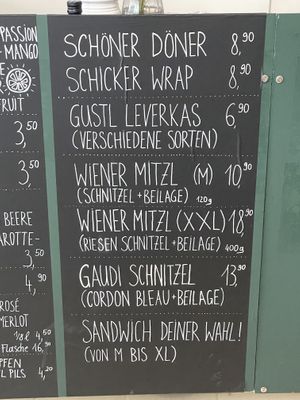 PASSION
-MANGO
FRUIT
3,50
3,50
BEERE
AROTTE-
3,50
4,90
ROSÉ
MERLOT
4,50
Flasche 16,90
PFEN
L PILS 4,20
SCHÖNER DÖNER 8,90
SCHICKER WRAP 8,90
GUSTL LEVERKAS 6,90
(VERSCHIEDENE SORTEN)
WIENER MITZL (M) 10,90
(SCHNITZEL+BEILAGE) 120g
WIENER MITZL (XXL) 18,90
(RIESEN SCHNITZEL+BEILAGE) 400g
GAUDI SCHNITZEL 13,90
(CORDON BLEAU+BEILAGE)
SANDWICH DEINER WAHL!
(VON M BIS XL)